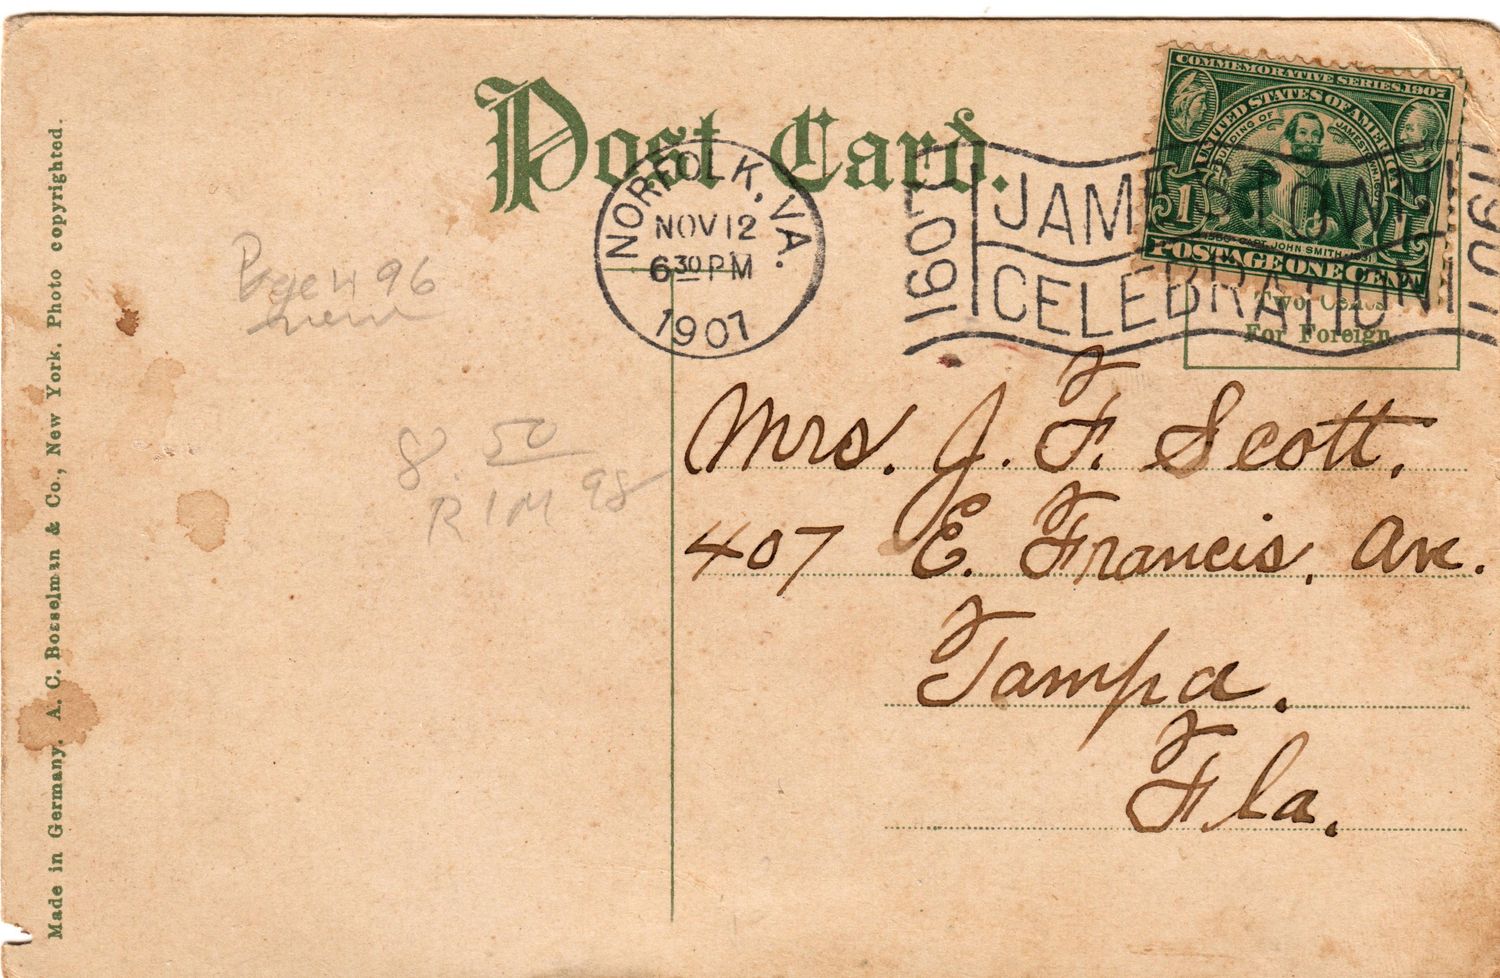 Post Card.
NORFOLK, VA.
NOV 12
6 30 PM
1907
1607 JAMESTOWN CELEBRATION 1907
COMMEMORATIVE SERIES 1907
UNITED STATES OF AMERICA
FOUNDING OF JAMESTOWN 1607
1 1
1580 CAPT. JOHN SMITH 1631
POSTAGE ONE CENT
Two Cents
For Foreign
96
8. 50
R I M 98
Mrs. J. F. Scott,
407 E. Francis, Ave.
Tampa.
Fla.
Made in Germany. A. C. Bosselman & Co., New York. Photo copyrighted.